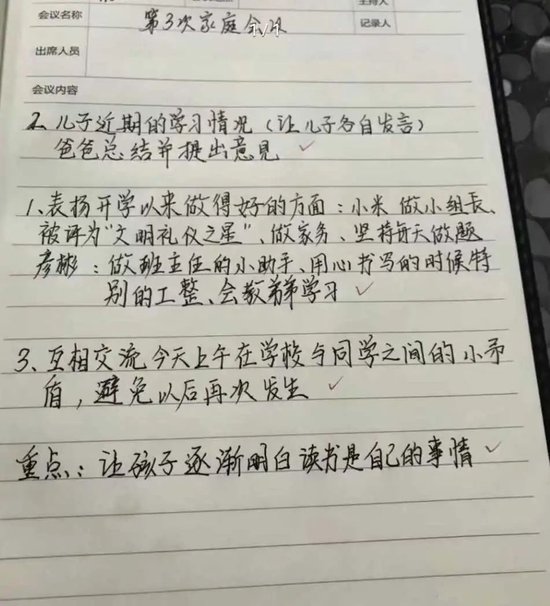 主持人
会议名称 第3次家庭会议
记录人
出席人员
会议内容
2、儿子近期的学习情况（让儿子各自发言）
爸爸总结并提出意见 ✓
1、表扬开学以来做得好的方面：小米 做小组长、
被评为“文明礼仪之星”、做家务、坚持每天做题
彦彬：做班主任的小助手、用心书写的时候特
别的工整、会教弟弟学习 ✓
3、互相交流今天上午在学校与同学之间的小矛
盾，避免以后再次发生 ✓
重点：让孩子逐渐明白读书是自己的事情 ✓